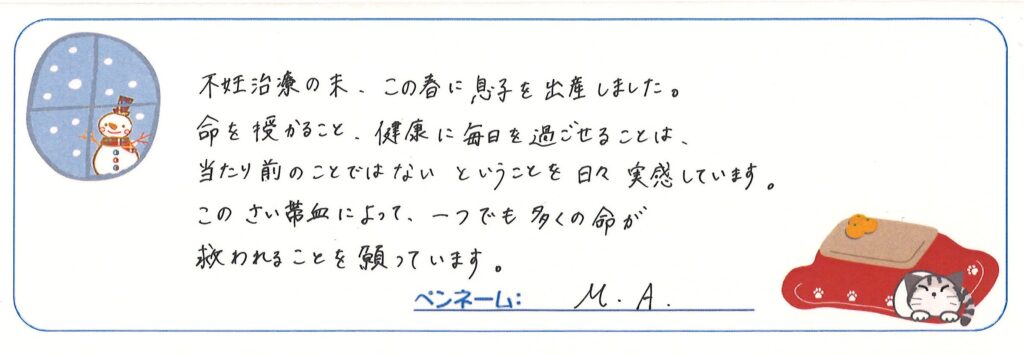 不妊治療の末、この春に息子を出産しました。
命を授かること、健康に毎日を過ごせることは、
当たり前のことではないということを日々実感しています。
このさい帯血によって、一つでも多くの命が
救われることを願っています。
ペンネーム: M.A.